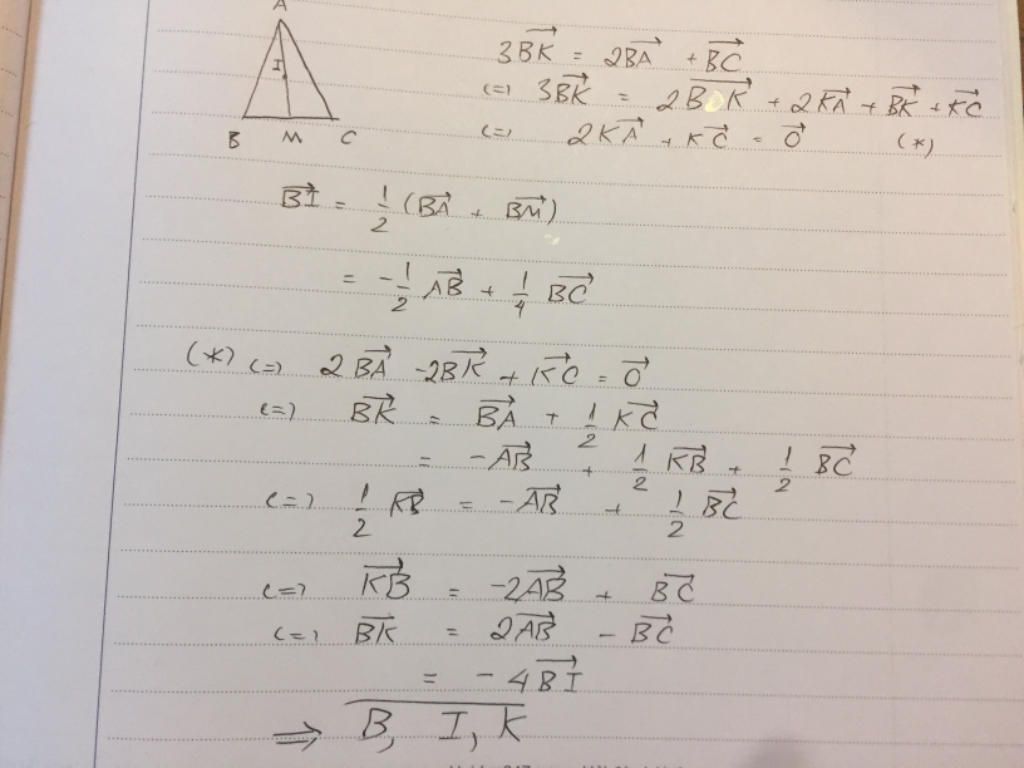 A
I
B M C
3BK⃗ = 2BA⃗ + BC⃗
(=) 3BK⃗ = 2BK⃗ + 2KA⃗ + BK⃗ + KC⃗
(=) 2KA⃗ + KC⃗ = 0⃗ (*)
BI⃗ = 1/2 (BA⃗ + BM⃗)
= -1/2 AB⃗ + 1/4 BC⃗
(*) (=) 2BA⃗ - 2BK⃗ + KC⃗ = 0⃗
(=) BK⃗ = BA⃗ + 1/2 KC⃗
= -AB⃗ + 1/2 KB⃗ + 1/2 BC⃗
(=) 1/2 KB⃗ = -AB⃗ + 1/2 BC⃗
(=) KB⃗ = -2AB⃗ + BC⃗
(=) BK⃗ = 2AB⃗ - BC⃗
= -4BI⃗
⇒ B, I, K